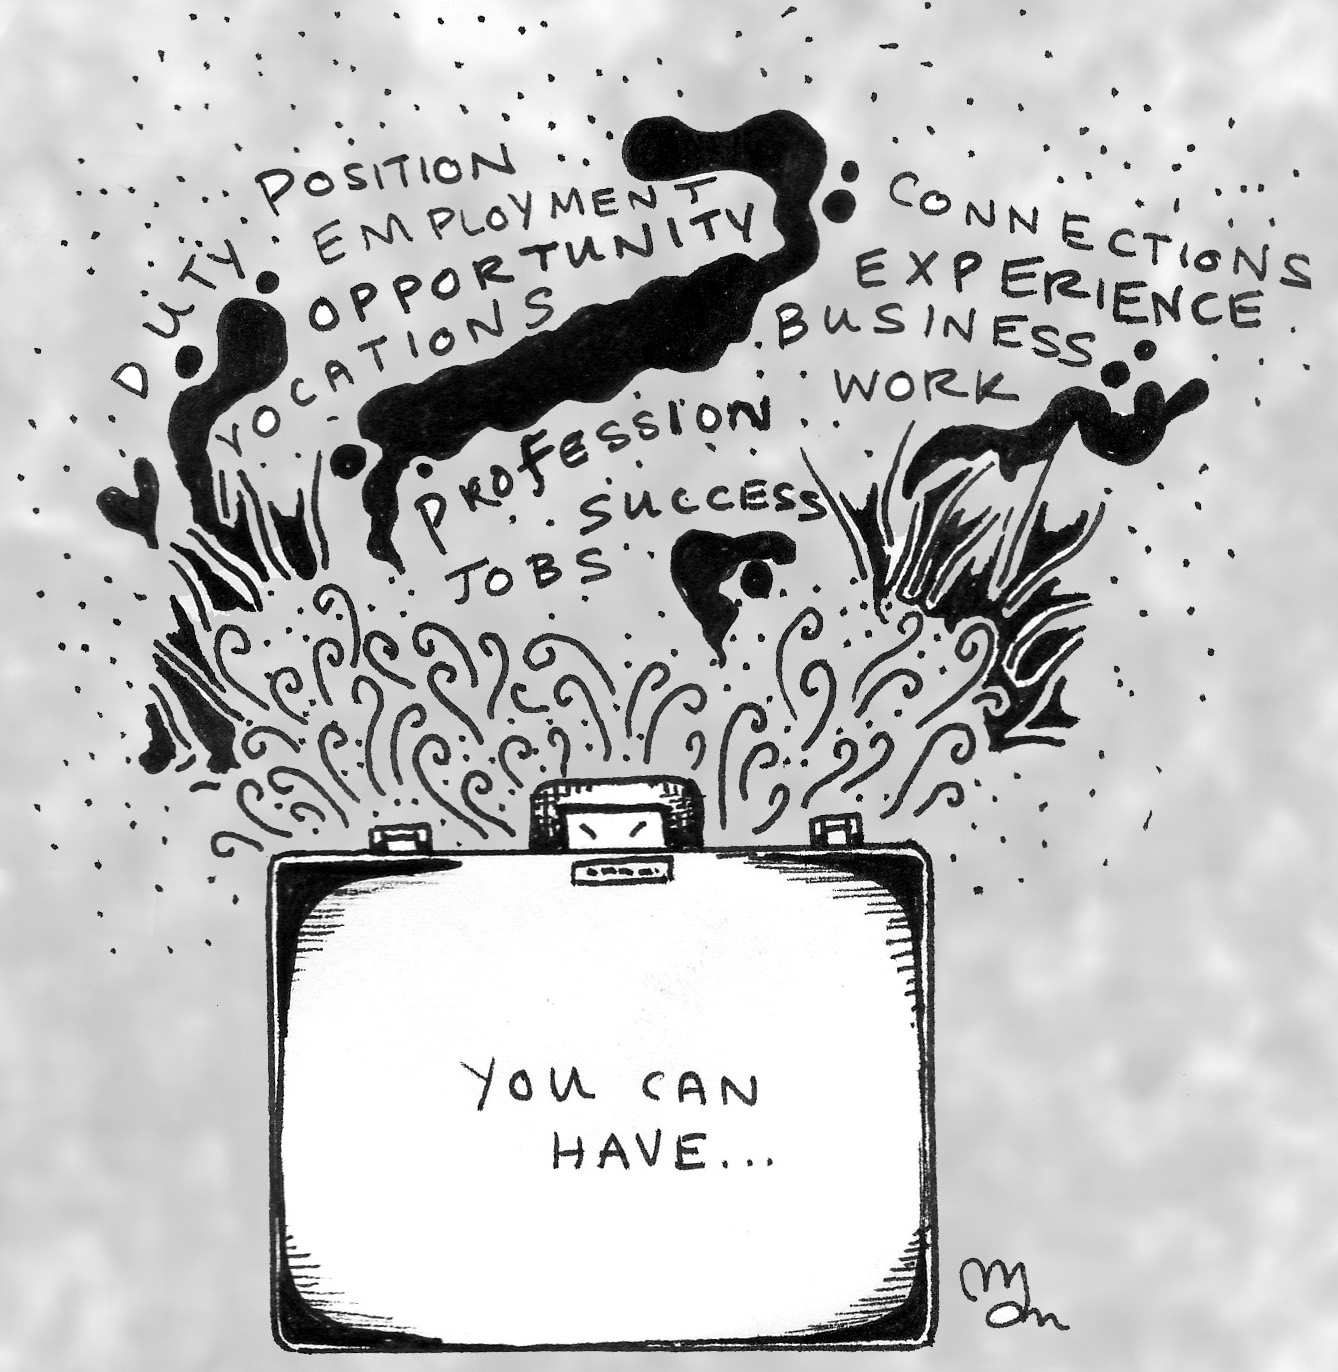 POSITION
EMPLOYMENT
OPPORTUNITY
VOCATIONS
DUTY
CONNECTIONS
EXPERIENCE
BUSINESS
WORK
PROFESSION
SUCCESS
JOBS
YOU CAN
HAVE...